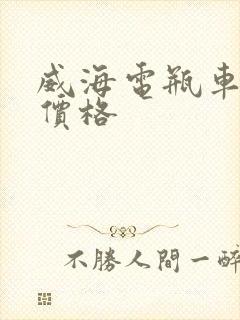 威海電瓶車
價格
不勝人間一醉